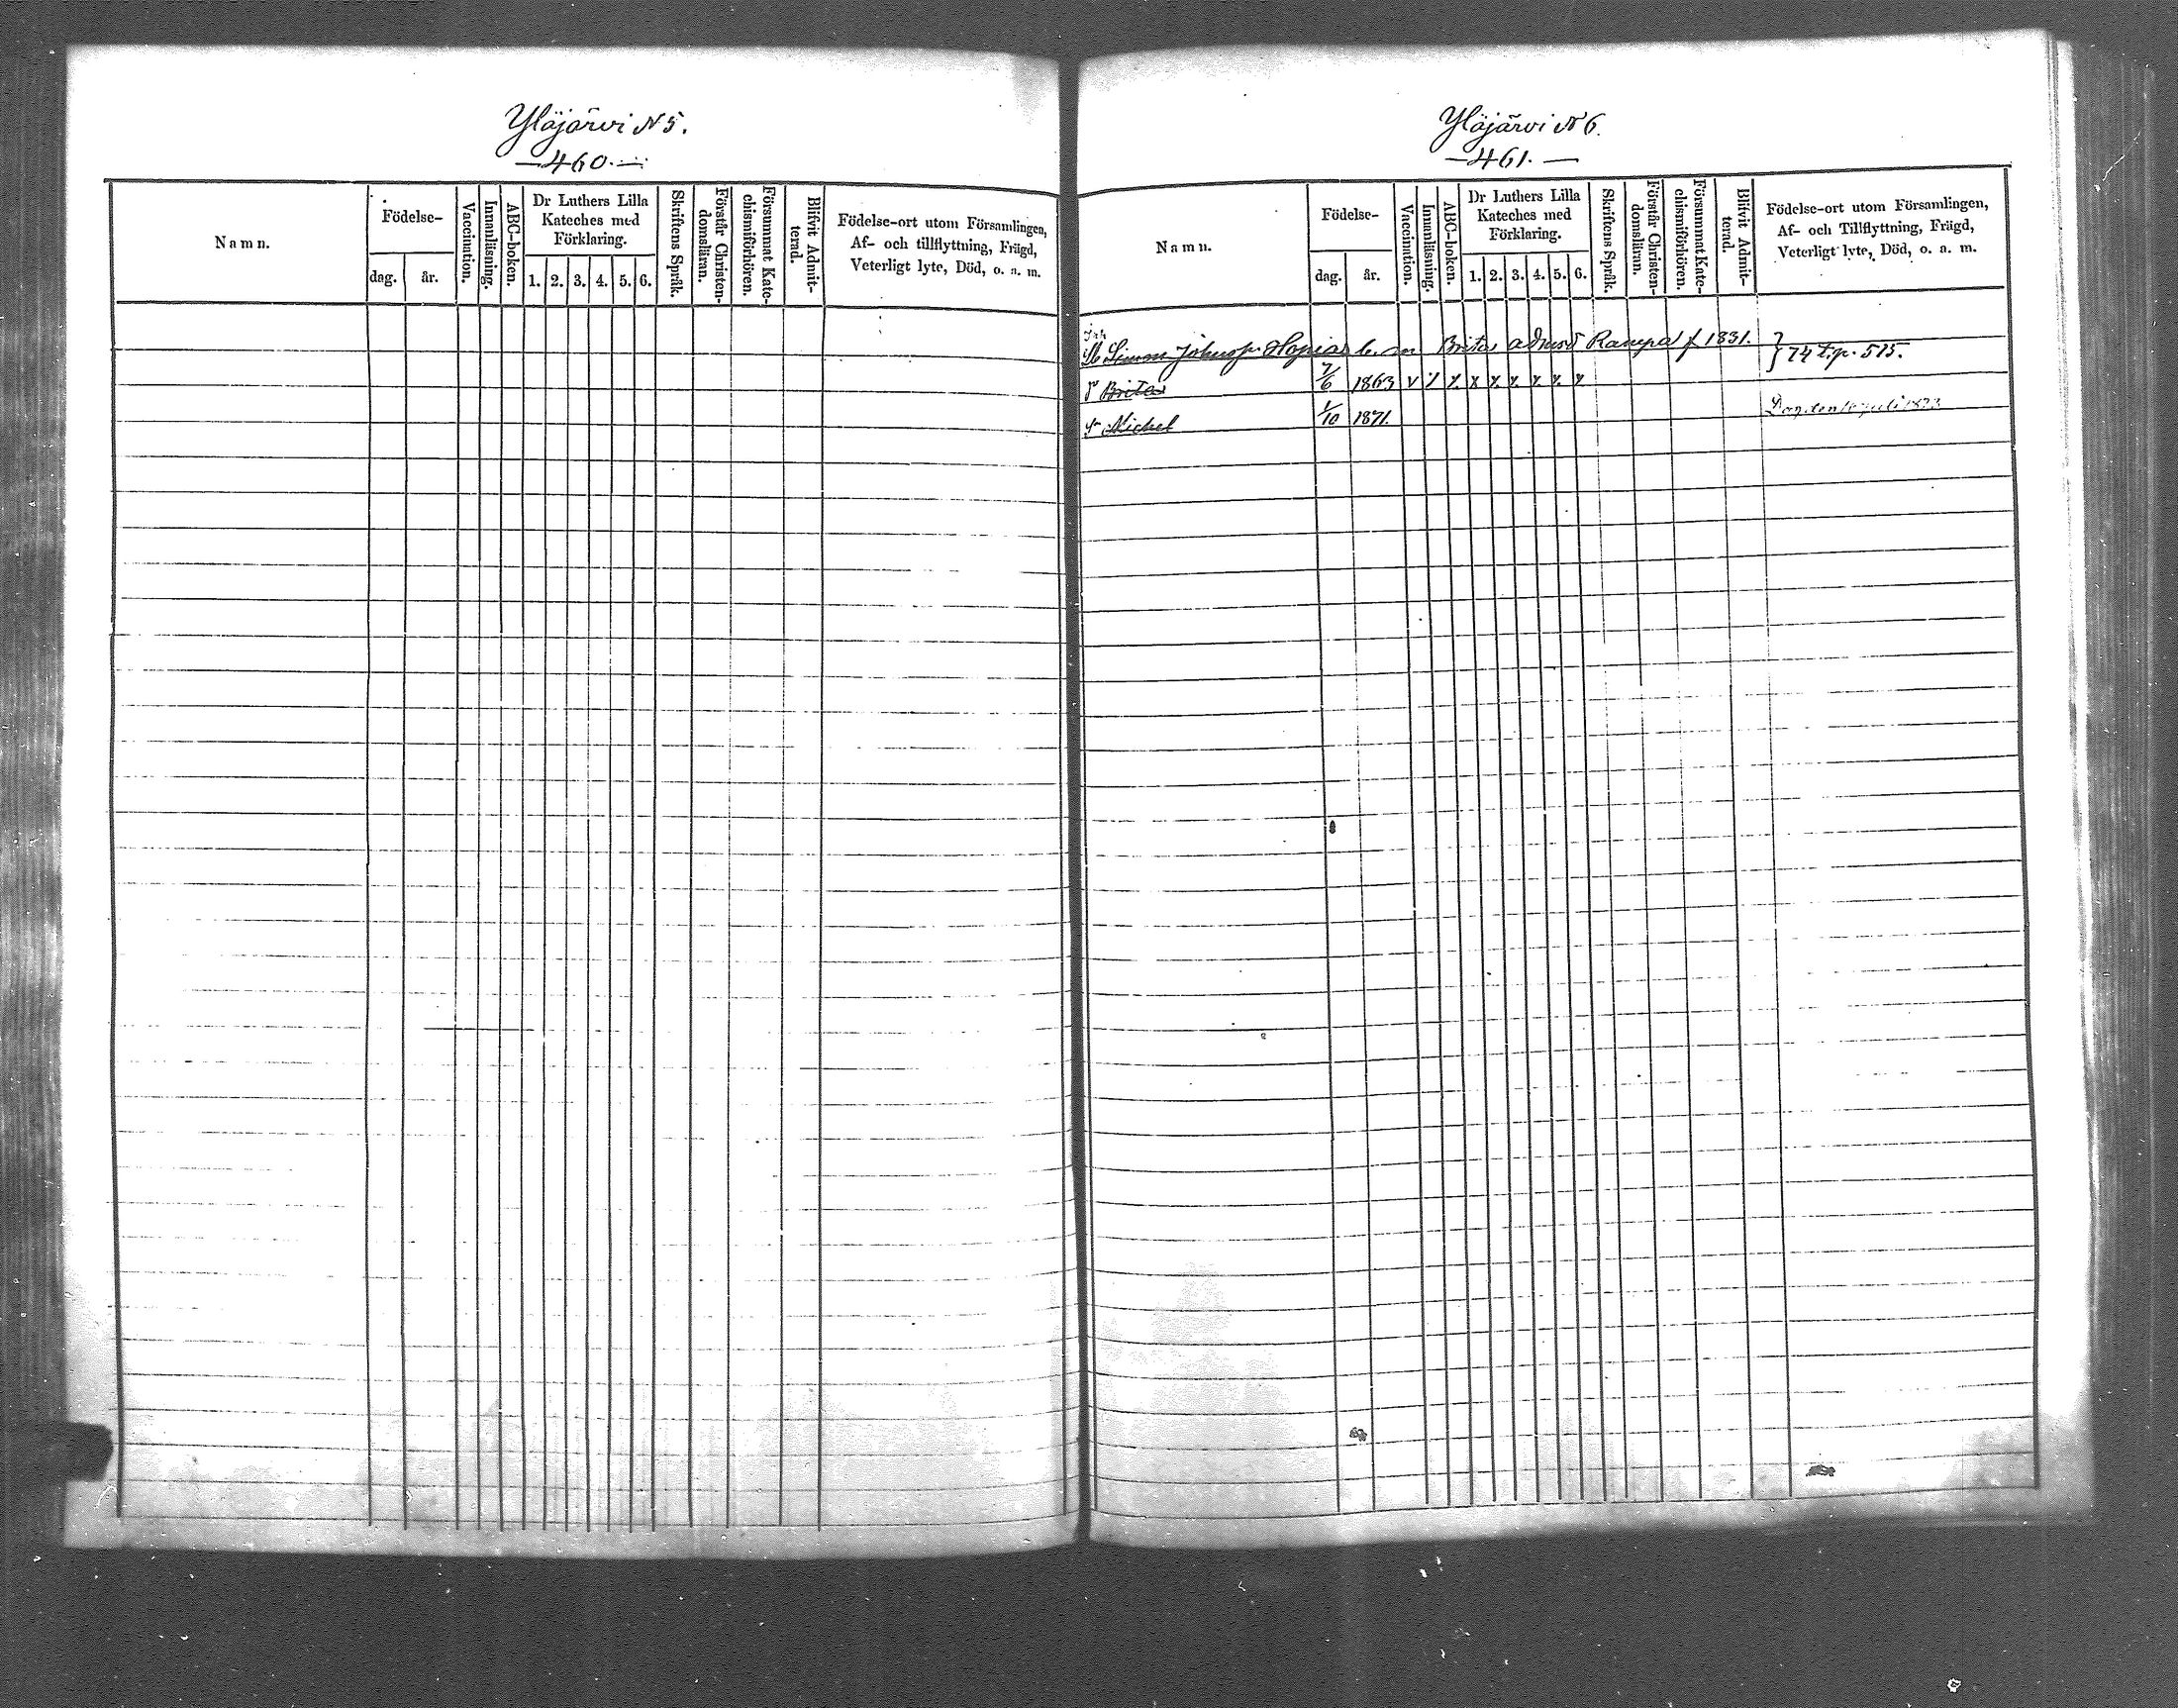 Yläjärvi N 5.
—460.—
Namn.
Födelse-
dag.
år.
Vaccination.
Innanläsning.
ABC-boken.
Dr Luthers Lilla
Kateches med
Förklaring.
1. 2. 3. 4. 5. 6.
Skriftens Språk.
Förstår Christen-
domsläran.
Försummat Kate-
chismiförhören.
Blifvit Admit-
terad.
Födelse-ort utom Församlingen,
Af- och tillflyttning, Frägd,
Veterligt lyte, Död, o. a. m.
Yläjärvi N 6.
—461.—
Namn.
Födelse-
dag.
år.
Vaccination.
Innanläsning.
ABC-boken.
Dr Luthers Lilla
Kateches med
Förklaring.
1. 2. 3. 4. 5. 6.
Skriftens Språk.
Förstår Christen-
domsläran.
Försummat Kate-
chismiförhören.
Blifvit Admit-
terad.
Födelse-ort utom Församlingen,
Af- och Tillflyttning, Frägd,
Veterligt lyte, Död, o. a. m.
Simon Johnsp. Hopia m Brita Rampa f 1831. } 74 t.p. 515.
Brita 7/6 1863 v
Michel 1/10 1871. juli 1873